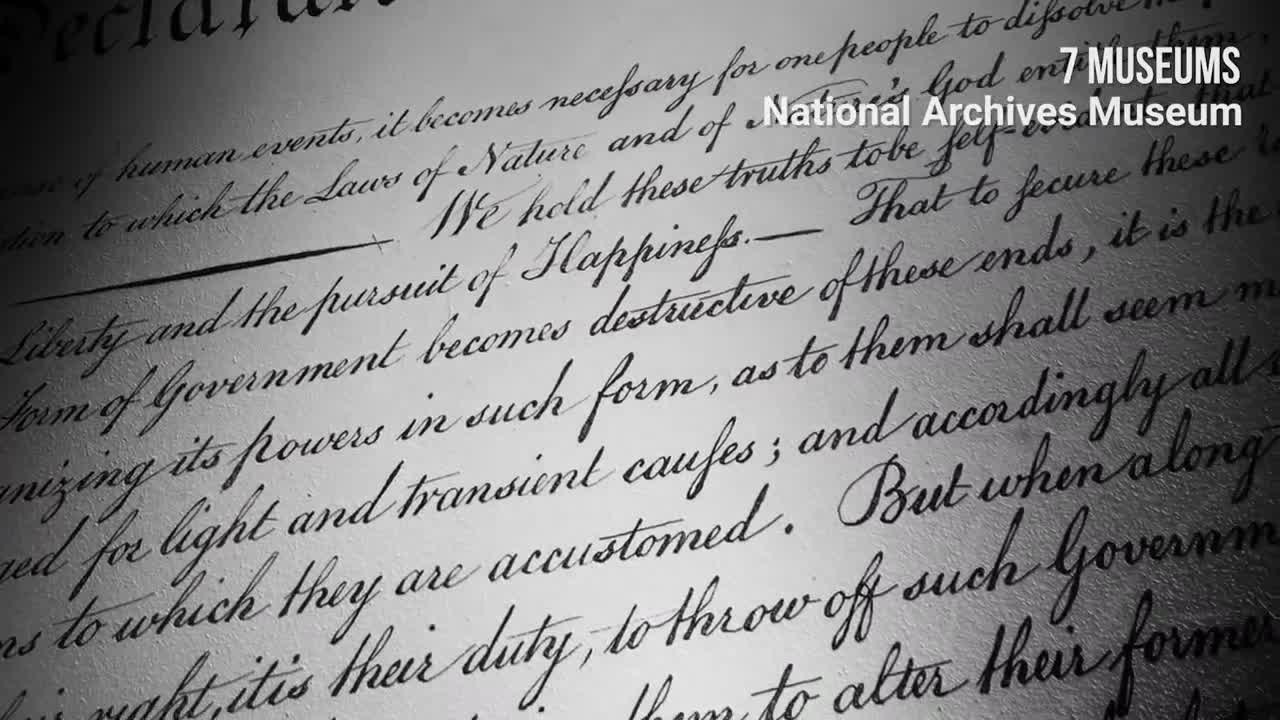 7 MUSEUMS
National Archives Museum
Declaration
of human events, it becomes neceſsary for one people to diſsolve
to which the Laws of Nature and of Nature's God entitle them,
We hold these truths to be ſelf-evident, that
Liberty and the pursuit of Happineſs.— That to ſecure these
Form of Government becomes destructive of these ends, it is the
its powers in such form, as to them shall seem
for light and transient cauſes; and accordingly all
to which they are accustomed. But when a long
right, it is their duty, to throw off such Governm
them to alter their former